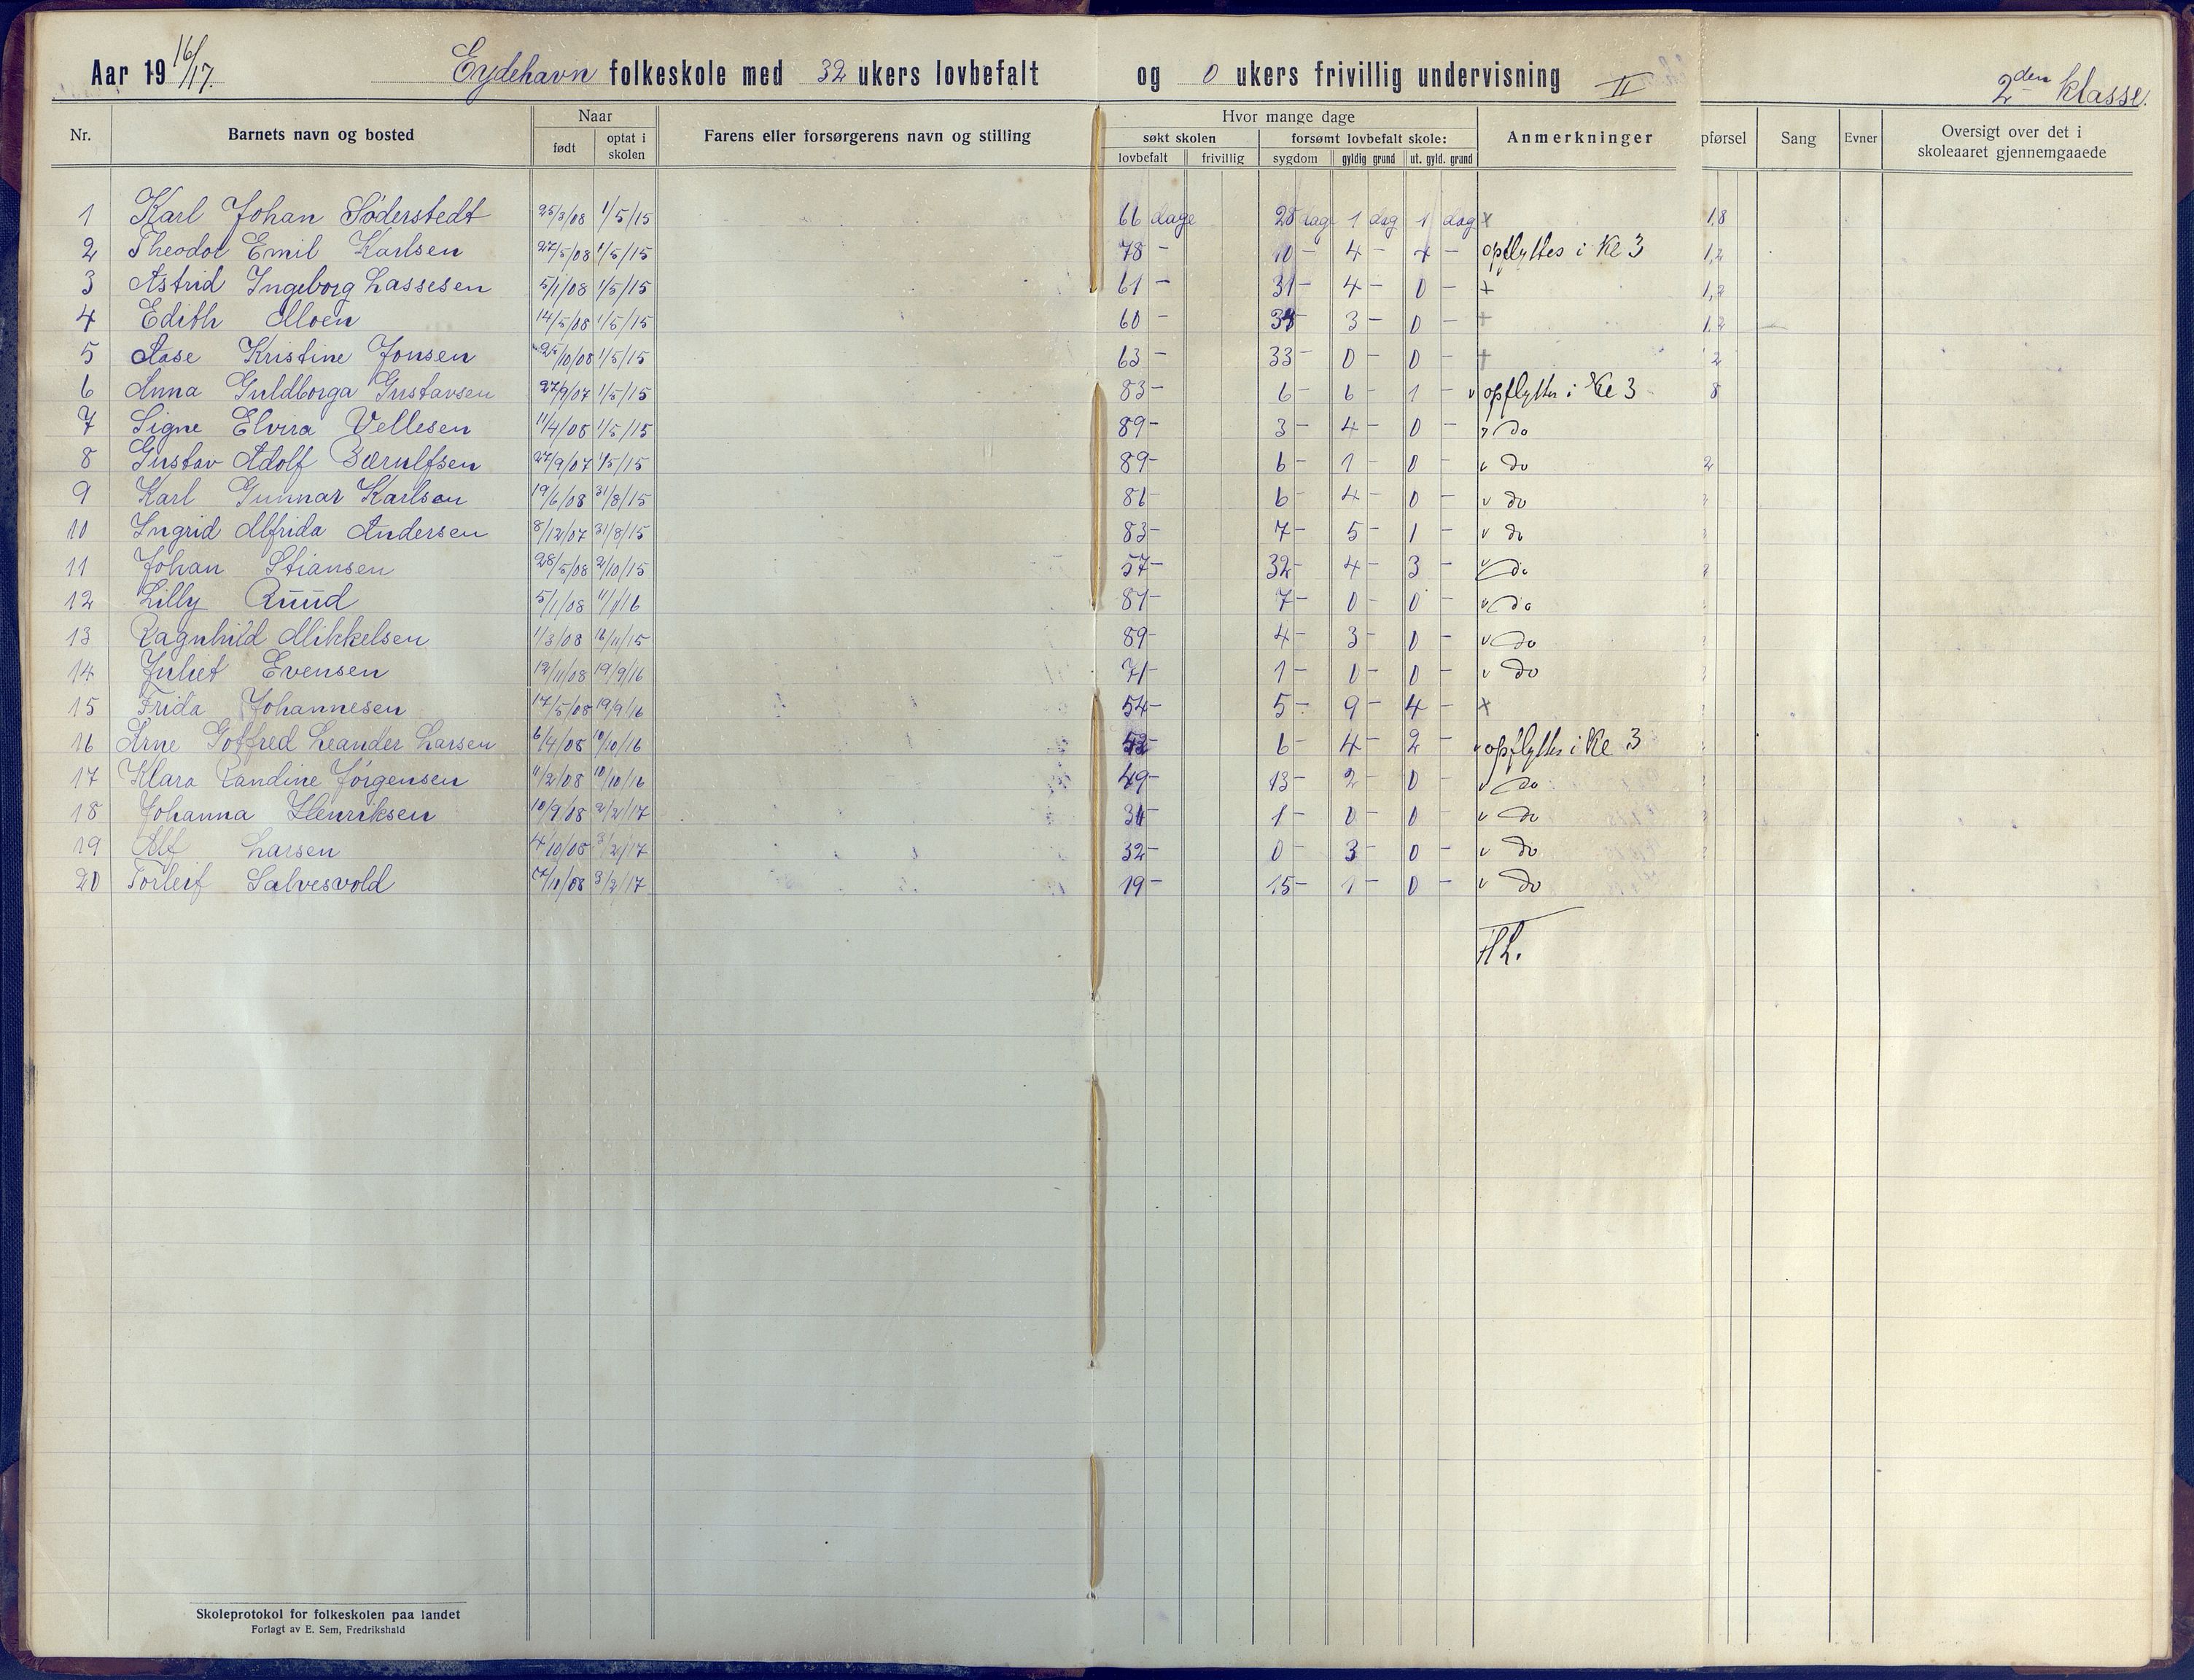 Aar 19 16/17. Eydehavn folkeskole med 32 ukers lovbefalt og 0 ukers frivillig undervisning II 2den klasse.
Nr. Barnets navn og bosted Naar født optat i skolen Farens eller forsørgerens navn og stilling Hvor mange dage søkt skolen lovbefalt frivillig forsømt lovbefalt skole: sygdom gyldig grund ut. gyld. grund Anmerkninger pførsel Sang Evner Oversigt over det i skoleaaret gjennemgaaede
1 Karl Johan Söderstedt 25/3/08 1/5/15 66 dage 28 dag 1 dag 1 dag x 1,8
2 Theodor Emil Karlsen 27/5/08 1/5/15 78 - 10 - 4 - - opflyttes i Kl 3 1,2
3 Astrid Ingeborg Lassesen 5/1/08 1/5/15 61 - 31 - 4 - 0 - + 1,2
4 Edith Moen 14/5/08 1/5/15 60 - 3 - 0 - + 1,2
5 Aase Kristine Jonsen 25/10/08 1/5/15 63 - 33 - 0 - 0 - + 2
6 Anna Guldborga Gustavsen 27/9/07 1/5/15 83 - 6 - 6 - 1 - v opflyttes i Kl 3 8
7 Signe Elvira Vellesen 11/4/08 1/5/15 89 - 3 - 4 - 0 - do
8 Gustav Adolf Bærulfsen 27/9/07 1/5/15 89 - 6 - 1 - 0 - v do 2
9 Karl Gunnar Karlsen 19/6/08 31/8/15 86 - 6 - 4 - 0 - v do
10 Ingrid Alfrida Andersen 8/12/07 31/8/15 83 - 7 - 5 - 1 - v do
11 Johan Stiansen 28/5/08 2/10/15 57 - 32 - 4 - 3 - v do
12 Lilly Ruud 5/1/08 11/1/16 87 - 7 - 0 - 0 - v do
13 Ragnhild Mikkelsen 1/3/08 16/11/15 89 - 4 - 3 - 0 - v do
14 Juliet Evensen 12/11/08 19/9/16 71 - 1 - 0 - 0 - v do
15 Frida Johannesen 17/5/08 19/9/16 54 - 5 - 9 - 4 - x
16 Arne Gotfred Leander Larsen 6/4/08 10/10/16 52 - 6 - 4 - 2 - v opflyttes i Kl 3
17 Klara Randine Jørgensen 11/2/08 10/10/16 49 - 13 - 2 - 0 - v do
18 Johanna Henriksen 10/9/08 2/2/17 - 1 - 0 - 0 - v do
19 Alf Larsen 4/10/08 3/2/17 32 - 0 - 3 - 0 - v do
20 Torleif Salvesvold 17/11/08 3/2/17 19 - 15 - 1 - 0 - v do
H L.
Skoleprotokol for folkeskolen paa landet
Forlagt av E. Sem, Fredrikshald